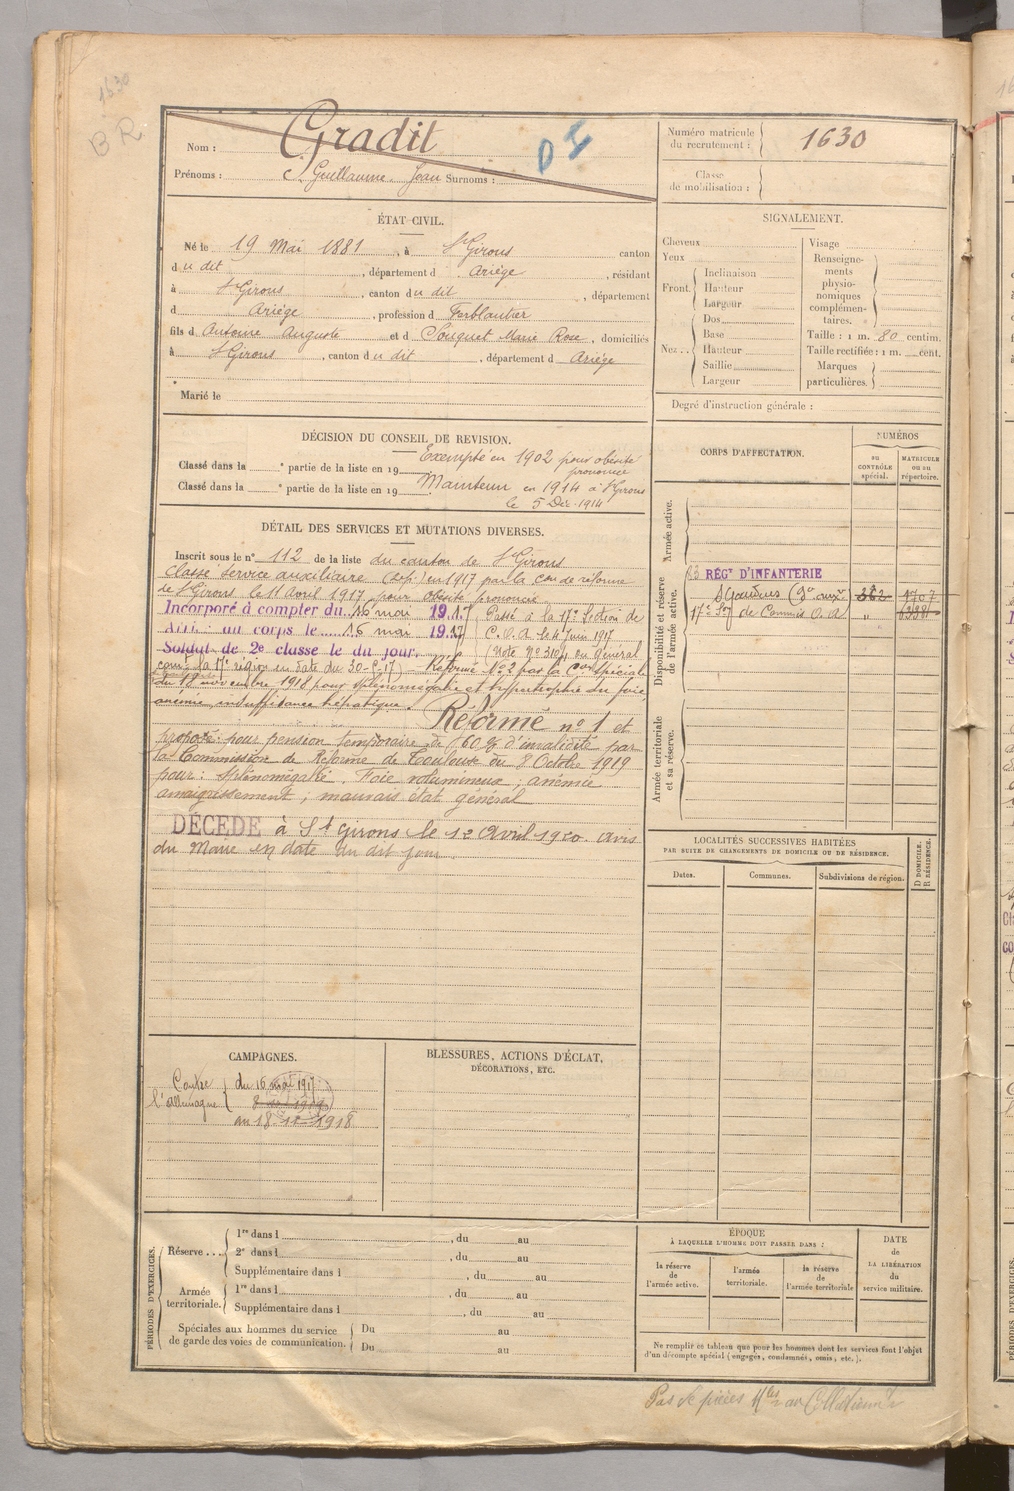 1630
B R
Nom : Gradit
D I
Prénoms : Guillaume Jean Surnoms :
Numéro matricule du recrutement : 1630
Classe de mobilisation :
ÉTAT CIVIL.
Né le 19 Mai 1881, à St Girons canton
du dit, département d Ariége, résidant
à St Girons, canton du dit, département
d Ariége, profession d Ferblantier
fils d Antoine Auguste et d Souquet Marie Rose, domiciliés
à St Girons, canton du dit, département d Ariége
Marié le
SIGNALEMENT.
Cheveux
Yeux
Front. Inclinaison
Hauteur
Largeur
Nez... Dos
Base
Hauteur
Saillie
Largeur
Visage
Renseigne-
ments
physio-
nomiques
complémen-
taires.
Taille : 1 m. 80 centim.
Taille rectifiée : 1 m. cent.
Marques
particulières.
Degré d'instruction générale :
DÉCISION DU CONSEIL DE REVISION.
Exempté en 1902 pour obésité
prononcée
Classé dans la e partie de la liste en 19
Classé dans la e partie de la liste en 19 Maintenu en 1914 à St Girons
le 5 Déc. 1914
DÉTAIL DES SERVICES ET MUTATIONS DIVERSES.
Inscrit sous le n° 112 de la liste du canton de St Girons
Classé service auxiliaire en 1917 par la Con de réforme
de St Girons le 11 Avril 1917 pour obésité prononcée
Incorporé à compter du 16 mai 1917 Passé à la 17e Section de
Arrivé au corps le 16 mai 1917 C. O. A le 4 juin 1917
Soldat de 2e classe le du jour. (Note N° général
comt la 17e région en date du 30-5-17) Réformé N° 2 par la Con spéciale
du 18 novembre 1918 pour splénomégalie et hypertrophie du foie,
anémie, insuffisance hépatique.
Réformé n° 1 et
proposé pour pension temporaire de 60 % d'invalidité par
la Commission de Réforme de Toulouse du 8 Octobre 1919
pour : Splénomégalie. Foie volumineux ; anémie
amaigrissement ; mauvais état général
DÉCÉDÉ à St Girons le 12 Avril 1920. avis
du Maire en date du dit jour
CORPS D'AFFECTATION.
NUMÉROS
au
CONTRÔLE
spécial.
MATRICULE
ou au
répertoire.
Armée active.
Disponibilité et réserve
de l'armée active.
83 RÉGt D'INFANTERIE
St Gaudens 362
17e Son de Commis O. A. "
Armée territoriale
et sa réserve.
LOCALITÉS SUCCESSIVES HABITÉES
PAR SUITE DE CHANGEMENTS DE DOMICILE OU DE RÉSIDENCE.
Dates.
Communes.
Subdivisions de région.
D DOMICILE.
R RÉSIDENCE.
CAMPAGNES.
Contre
l'Allemagne
du 16 mai 1917
au 18-11-1918
BLESSURES, ACTIONS D'ÉCLAT,
DÉCORATIONS, ETC.
PÉRIODES D'EXERCICES.
Réserve... 1re dans l , du au
2e dans l , du au
Supplémentaire dans l , du au
Armée
territoriale. 1re dans l , du au
Supplémentaire dans l , du au
Spéciales aux hommes du service
de garde des voies de communication.
Du au
Du au
ÉPOQUE
À LAQUELLE L'HOMME DOIT PASSER DANS :
la réserve
de
l'armée active.
l'armée
territoriale.
la réserve
de
l'armée territoriale
DATE
de
LA LIBÉRATION
du
service militaire.
Ne remplir ce tableau que pour les hommes dont les services font l'objet
d'un décompte spécial (engagés, condamnés, omis, etc.).
Pas de pièces